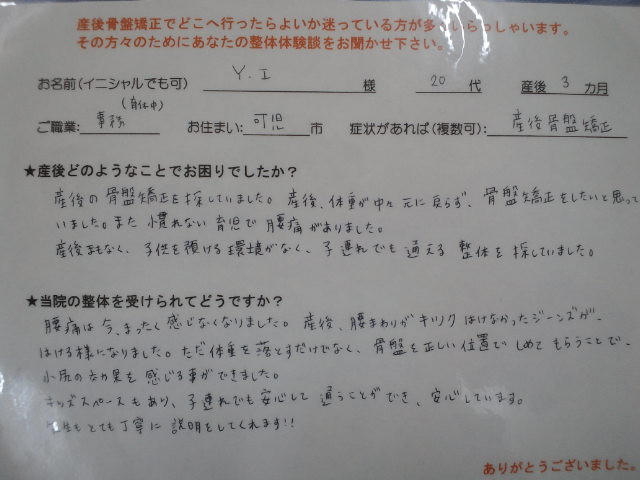 産後骨盤矯正でどこへ行ったらよいか迷っている方が多くいらっしゃいます。
その方々のためにあなたの整体体験談をお聞かせ下さい。
お名前(イニシャルでも可) Y.I 様 20 代 産後 3 カ月
(育休中)
ご職業: 事務 お住まい: 可児 市 症状があれば(複数可): 産後骨盤矯正
★産後どのようなことでお困りでしたか?
産後の骨盤矯正を探していました。産後、体重が中々元に戻らず、骨盤矯正をしたいと思って
いました。また慣れない育児で腰痛がありました。
産後まもなく、子供を預ける環境がなく、子連れでも通える整体を探していました。
★当院の整体を受けられてどうですか?
腰痛は今、まったく感じなくなりました。産後、腰まわりがキツクはけなかったジーンズが、
はける様になりました。ただ体重を落とすだけでなく、骨盤を正しい位置でしめてもらうことで、
小尻の効果を感じる事ができました。
キッズスペースもあり、子連れでも安心して通うことができ、安心しています。
先生もとても丁寧に説明をしてくれます!!
ありがとうございました。